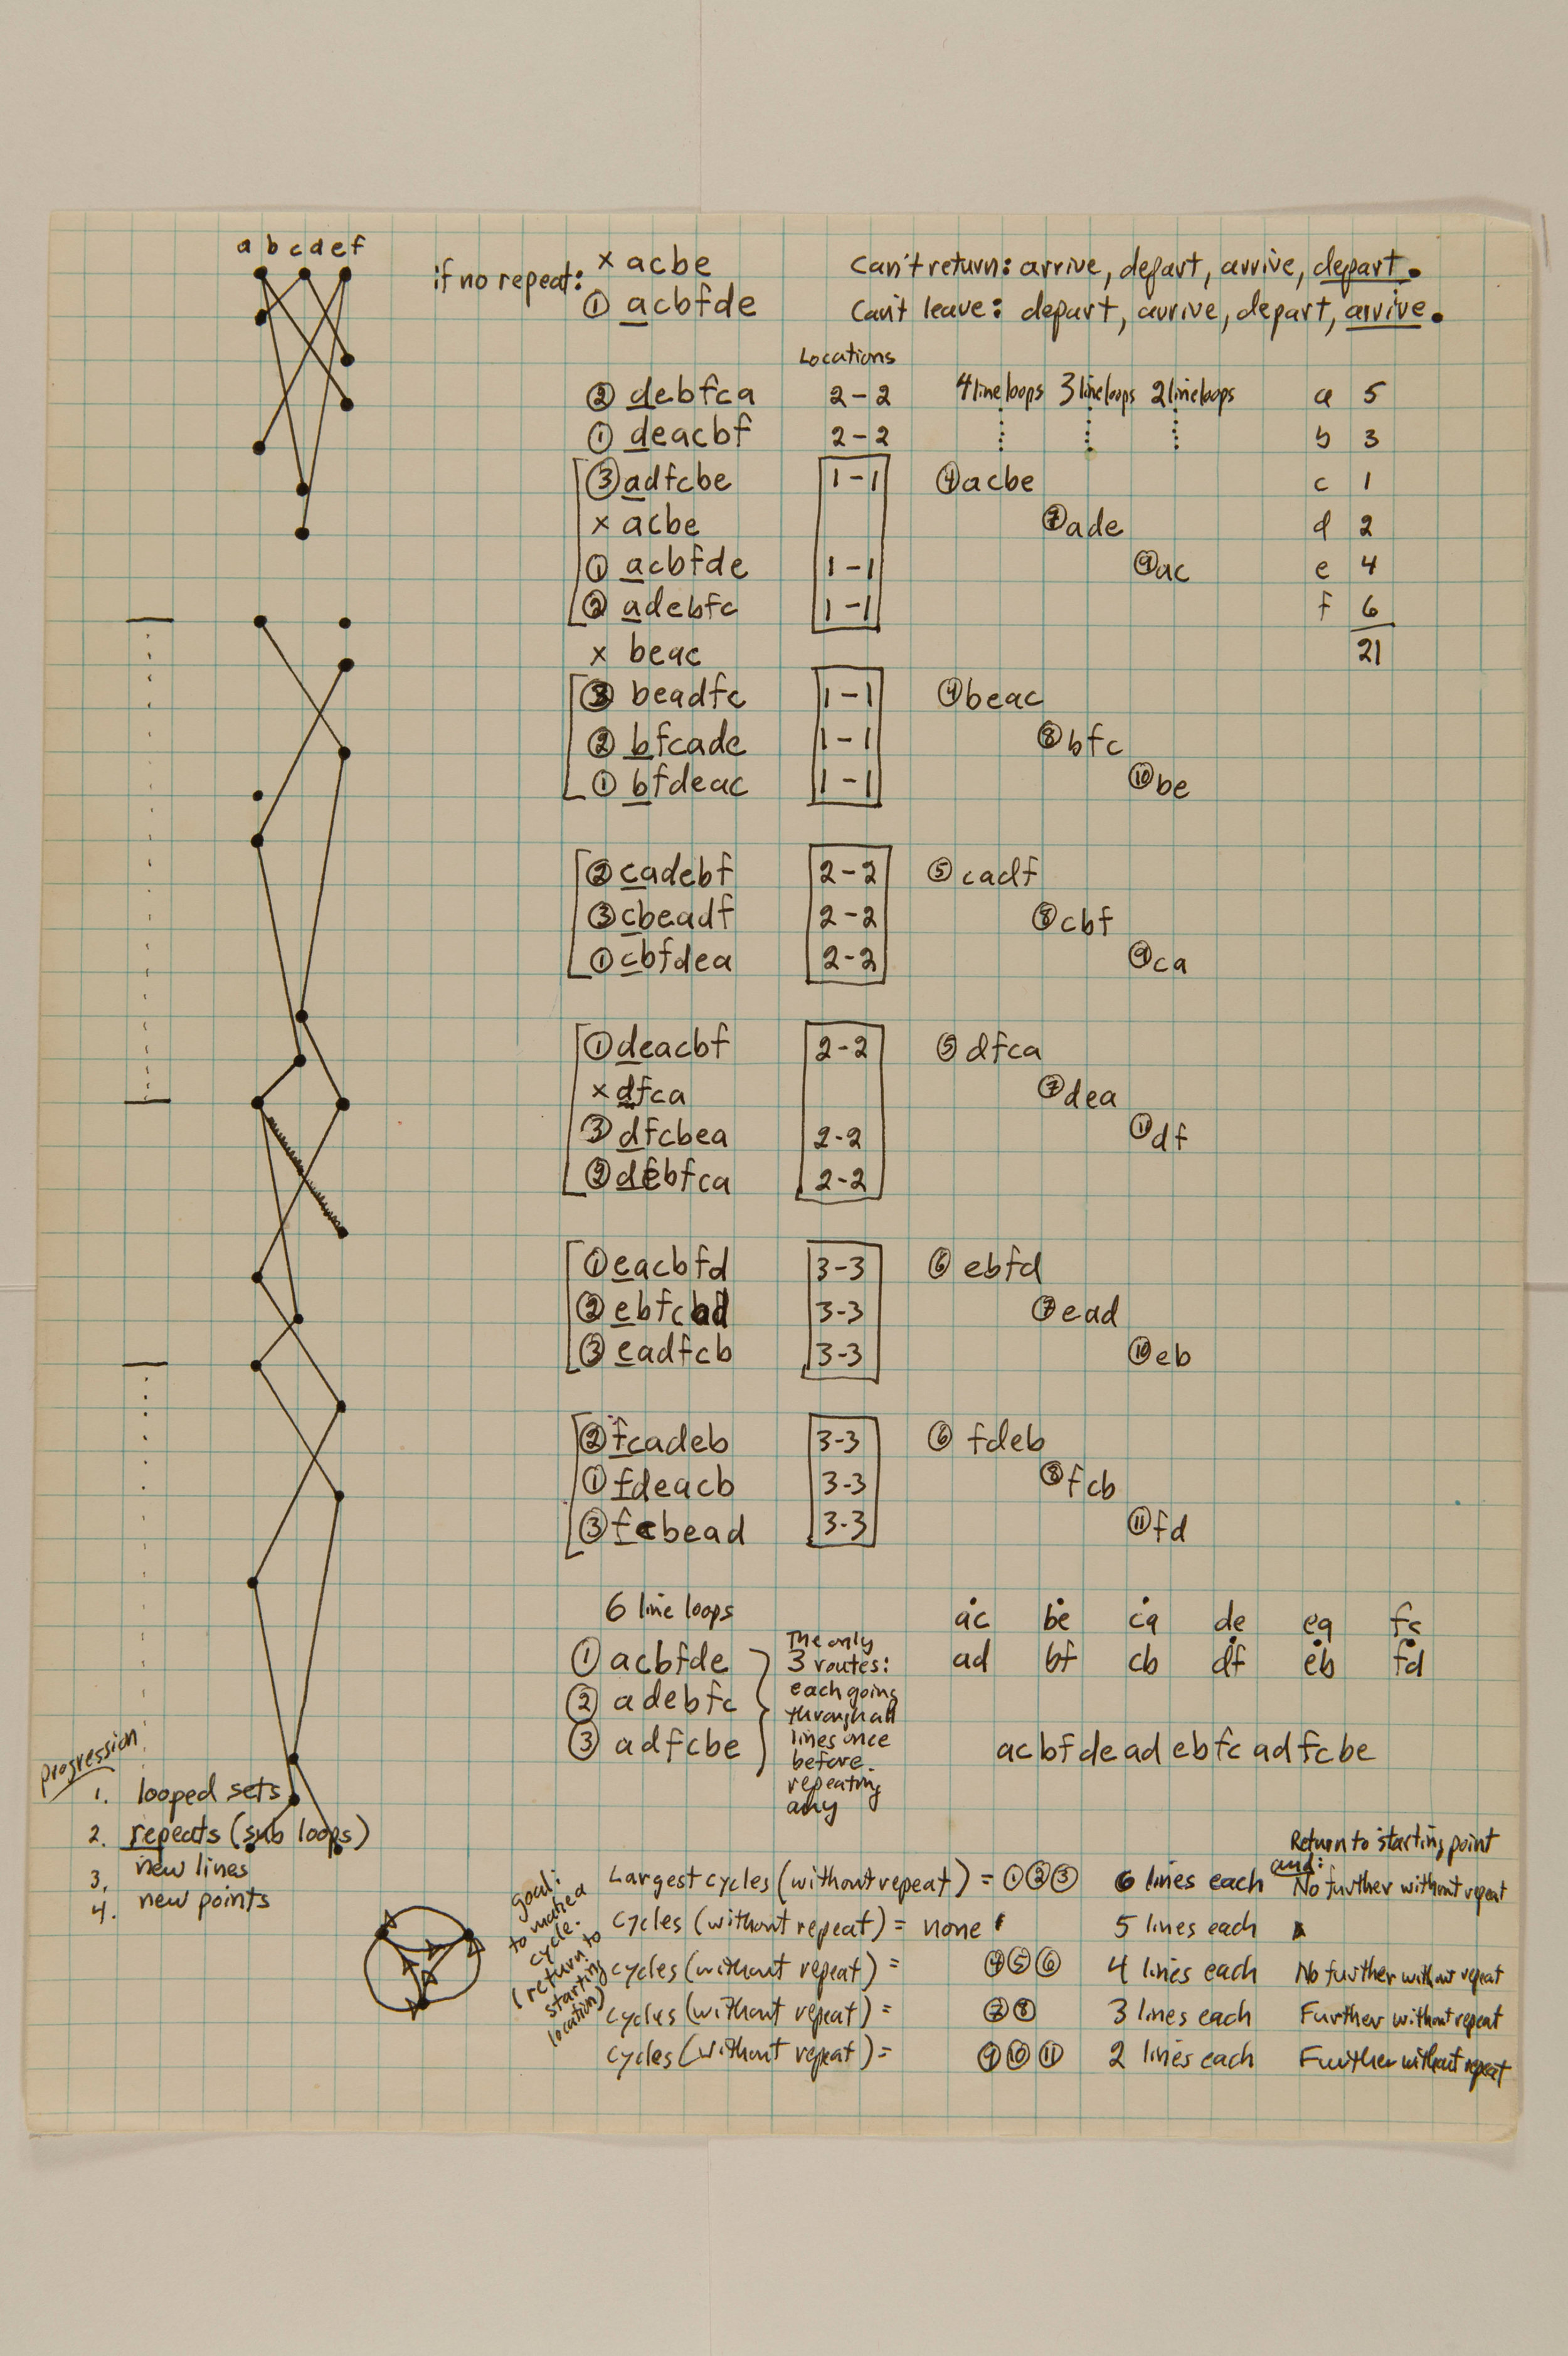 a b c d e f
if no repeat: × acbe
① acbfde
Can't return: arrive, depart, arrive, depart.
Can't leave: depart, arrive, depart, arrive.
Locations
② debfca 2-2 4 line loops 3 line loops 2 line loops a 5
① deacbf 2-2 b 3
③ adfcbe 1-1 ④ acbe c 1
× acbe ⑦ ade d 2
① acbfde 1-1 ⑨ ac e 4
② adebfc 1-1 f 6
× beac 21
③ beadfc 1-1 ④ beac
② bfcade 1-1 ⑧ bfc
① bfdeac 1-1 ⑩ be
② cadebf 2-2 ⑤ cadf
③ cbeadf 2-2 ⑧ cbf
① cbfdea 2-2 ⑨ ca
① deacbf 2-2 ⑤ dfca
× dfca ⑦ dea
③ dfcbea 2-2 ⑪ df
② debfca 2-2
① eacbfd 3-3 ⑥ ebfd
② ebfcad 3-3 ⑦ ead
③ eadfcb 3-3 ⑩ eb
② fcadeb 3-3 ⑥ fdeb
① fdeacb 3-3 ⑧ fcb
③ fcbead 3-3 ⑪ fd
6 line loops
① acbfde
② adebfc
③ adfcbe
The only
3 routes:
each going
through all
lines once
before
repeating
any
ac be ca de ea fc
ad bf cb df eb fd
acbfdeadebfcadfcbe
Progression
1. looped sets
2. repeats (sub loops)
3. new lines
4. new points
goal:
to make a
cycle.
(return to
starting
location)
Return to starting point
and:
Largest cycles (without repeat) = ①②③ 6 lines each No further without repeat
cycles (without repeat) = none 5 lines each
cycles (without repeat) = ④⑤⑥ 4 lines each No further without repeat
cycles (without repeat) = ⑦⑧ 3 lines each Further without repeat
cycles (without repeat) = ⑨⑩⑪ 2 lines each Further without repeat